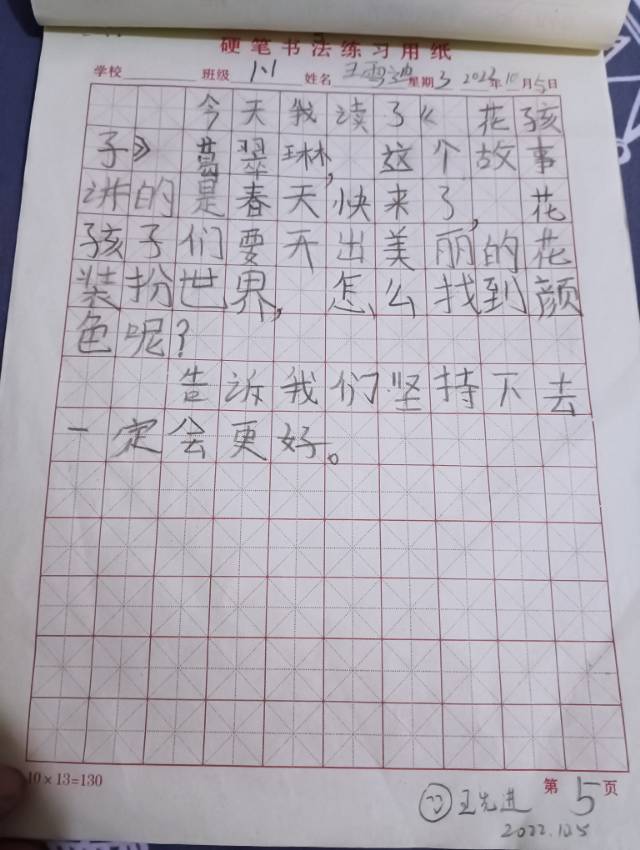 硬笔书法练习用纸
学校 班级 1.1 姓名 王雪迪 星期 3 2022年10月5日
今天我读了《花孩
子》葛翠琳,这个故事
讲的是春天快来了,花
孩子们要开出美丽的花
装扮世界,怎么找到颜
色呢?
告诉我们坚持下去
一定会更好。
10×13=130
第5页
王先进
2022.12.5